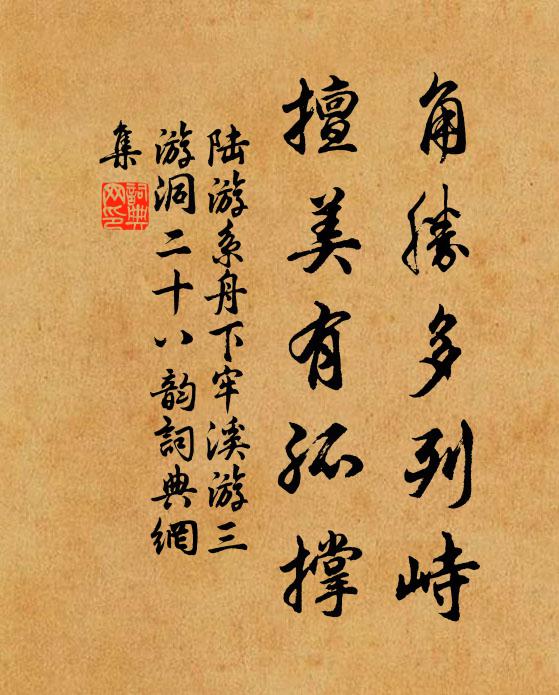 角勝多列峙
擅美有孤撑
陆游系舟下牢溪游三
游洞二十八韵詞典網
集
詞典网印